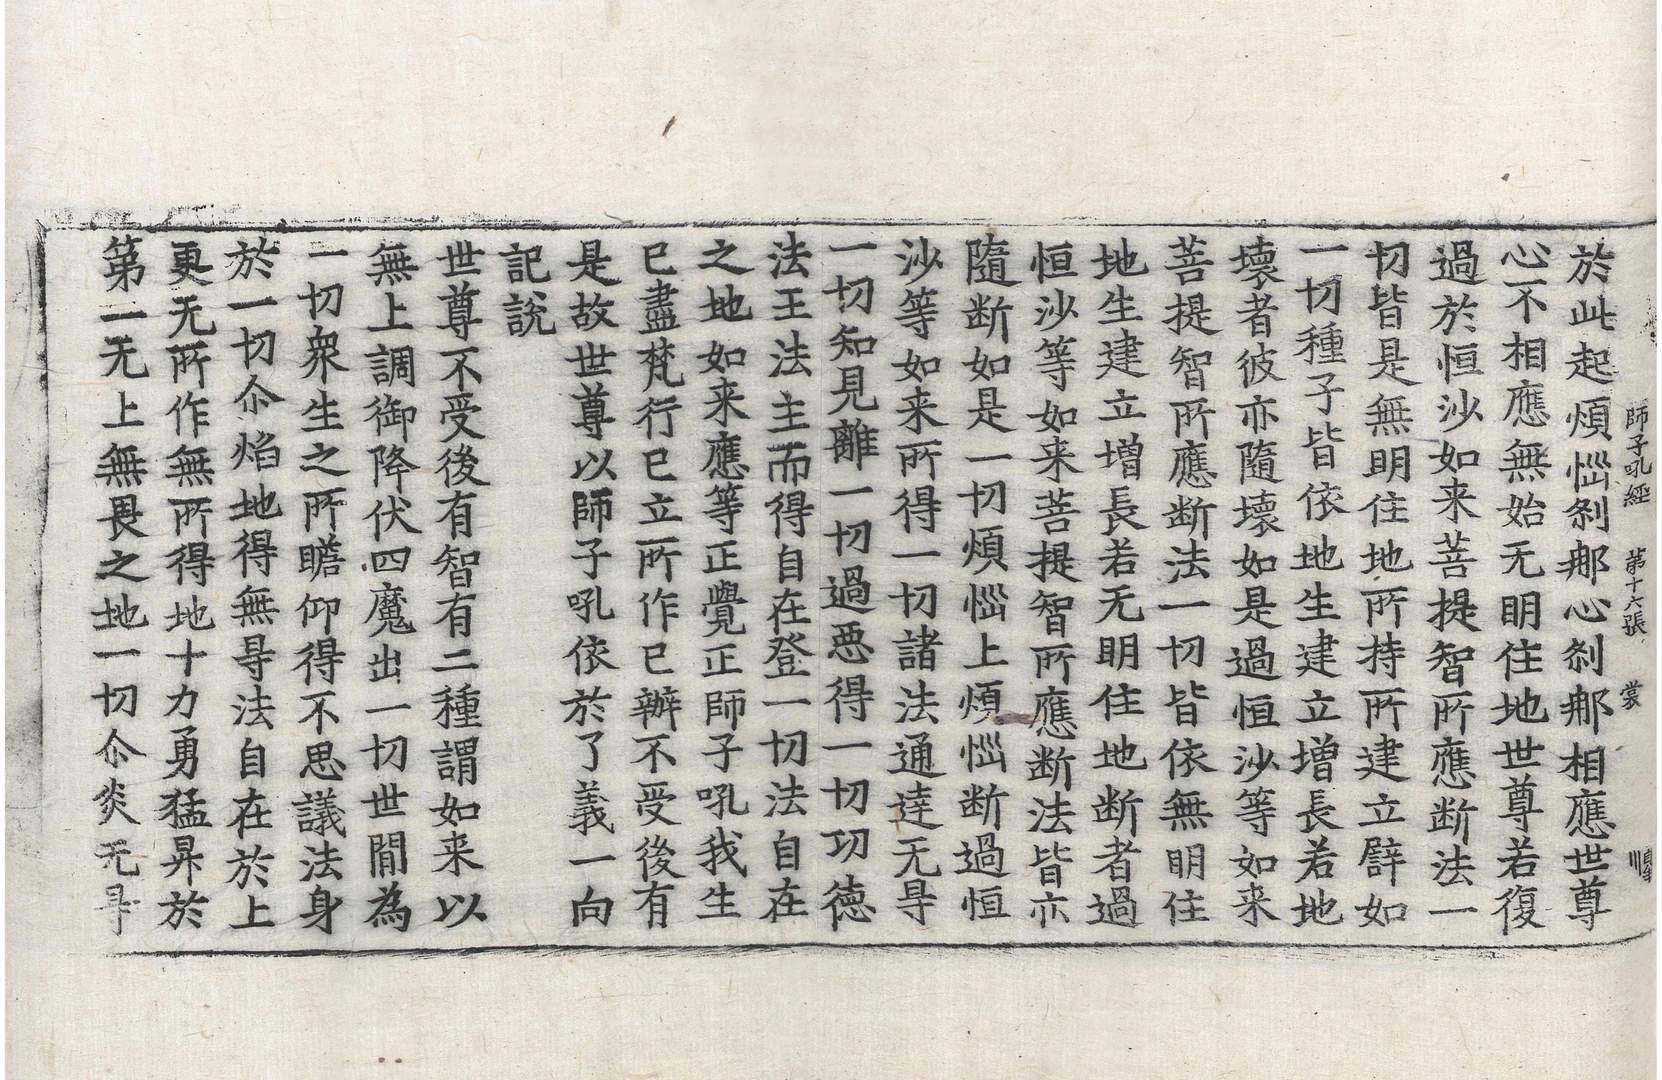 師子吼經　第十六張　裳　順
於此起煩惱刹那心刹那相應世尊
心不相應無始无明住地世尊若復
過於恒沙如来菩提智所應断法一
切皆是無明住地所持所建立譬如
一切種子皆依地生建立增長若地
壞者彼亦隨壞如是過恒沙等如来
菩提智所應断法一切皆依無明住
地生建立增長若无明住地断者過
恒沙等如来菩提智所應断法皆亦
隨断如是一切煩惱上煩惱断過恒
沙等如来所得一切諸法通達无㝵
一切知見離一切過惡得一切功德
法王法主而得自在登一切法自在
之地如来應等正覺正師子吼我生
已盡梵行已立所作已辦不受後有
是故世尊以師子吼依於了義一向
記說
世尊不受後有智有二種謂如来以
無上調御降伏四魔出一切世間為
一切衆生之所瞻仰得不思議法身
於一切尒焰地得無㝵法自在於上
更无所作無所得地十力勇猛昇於
第一无上無畏之地一切尒炎无㝵